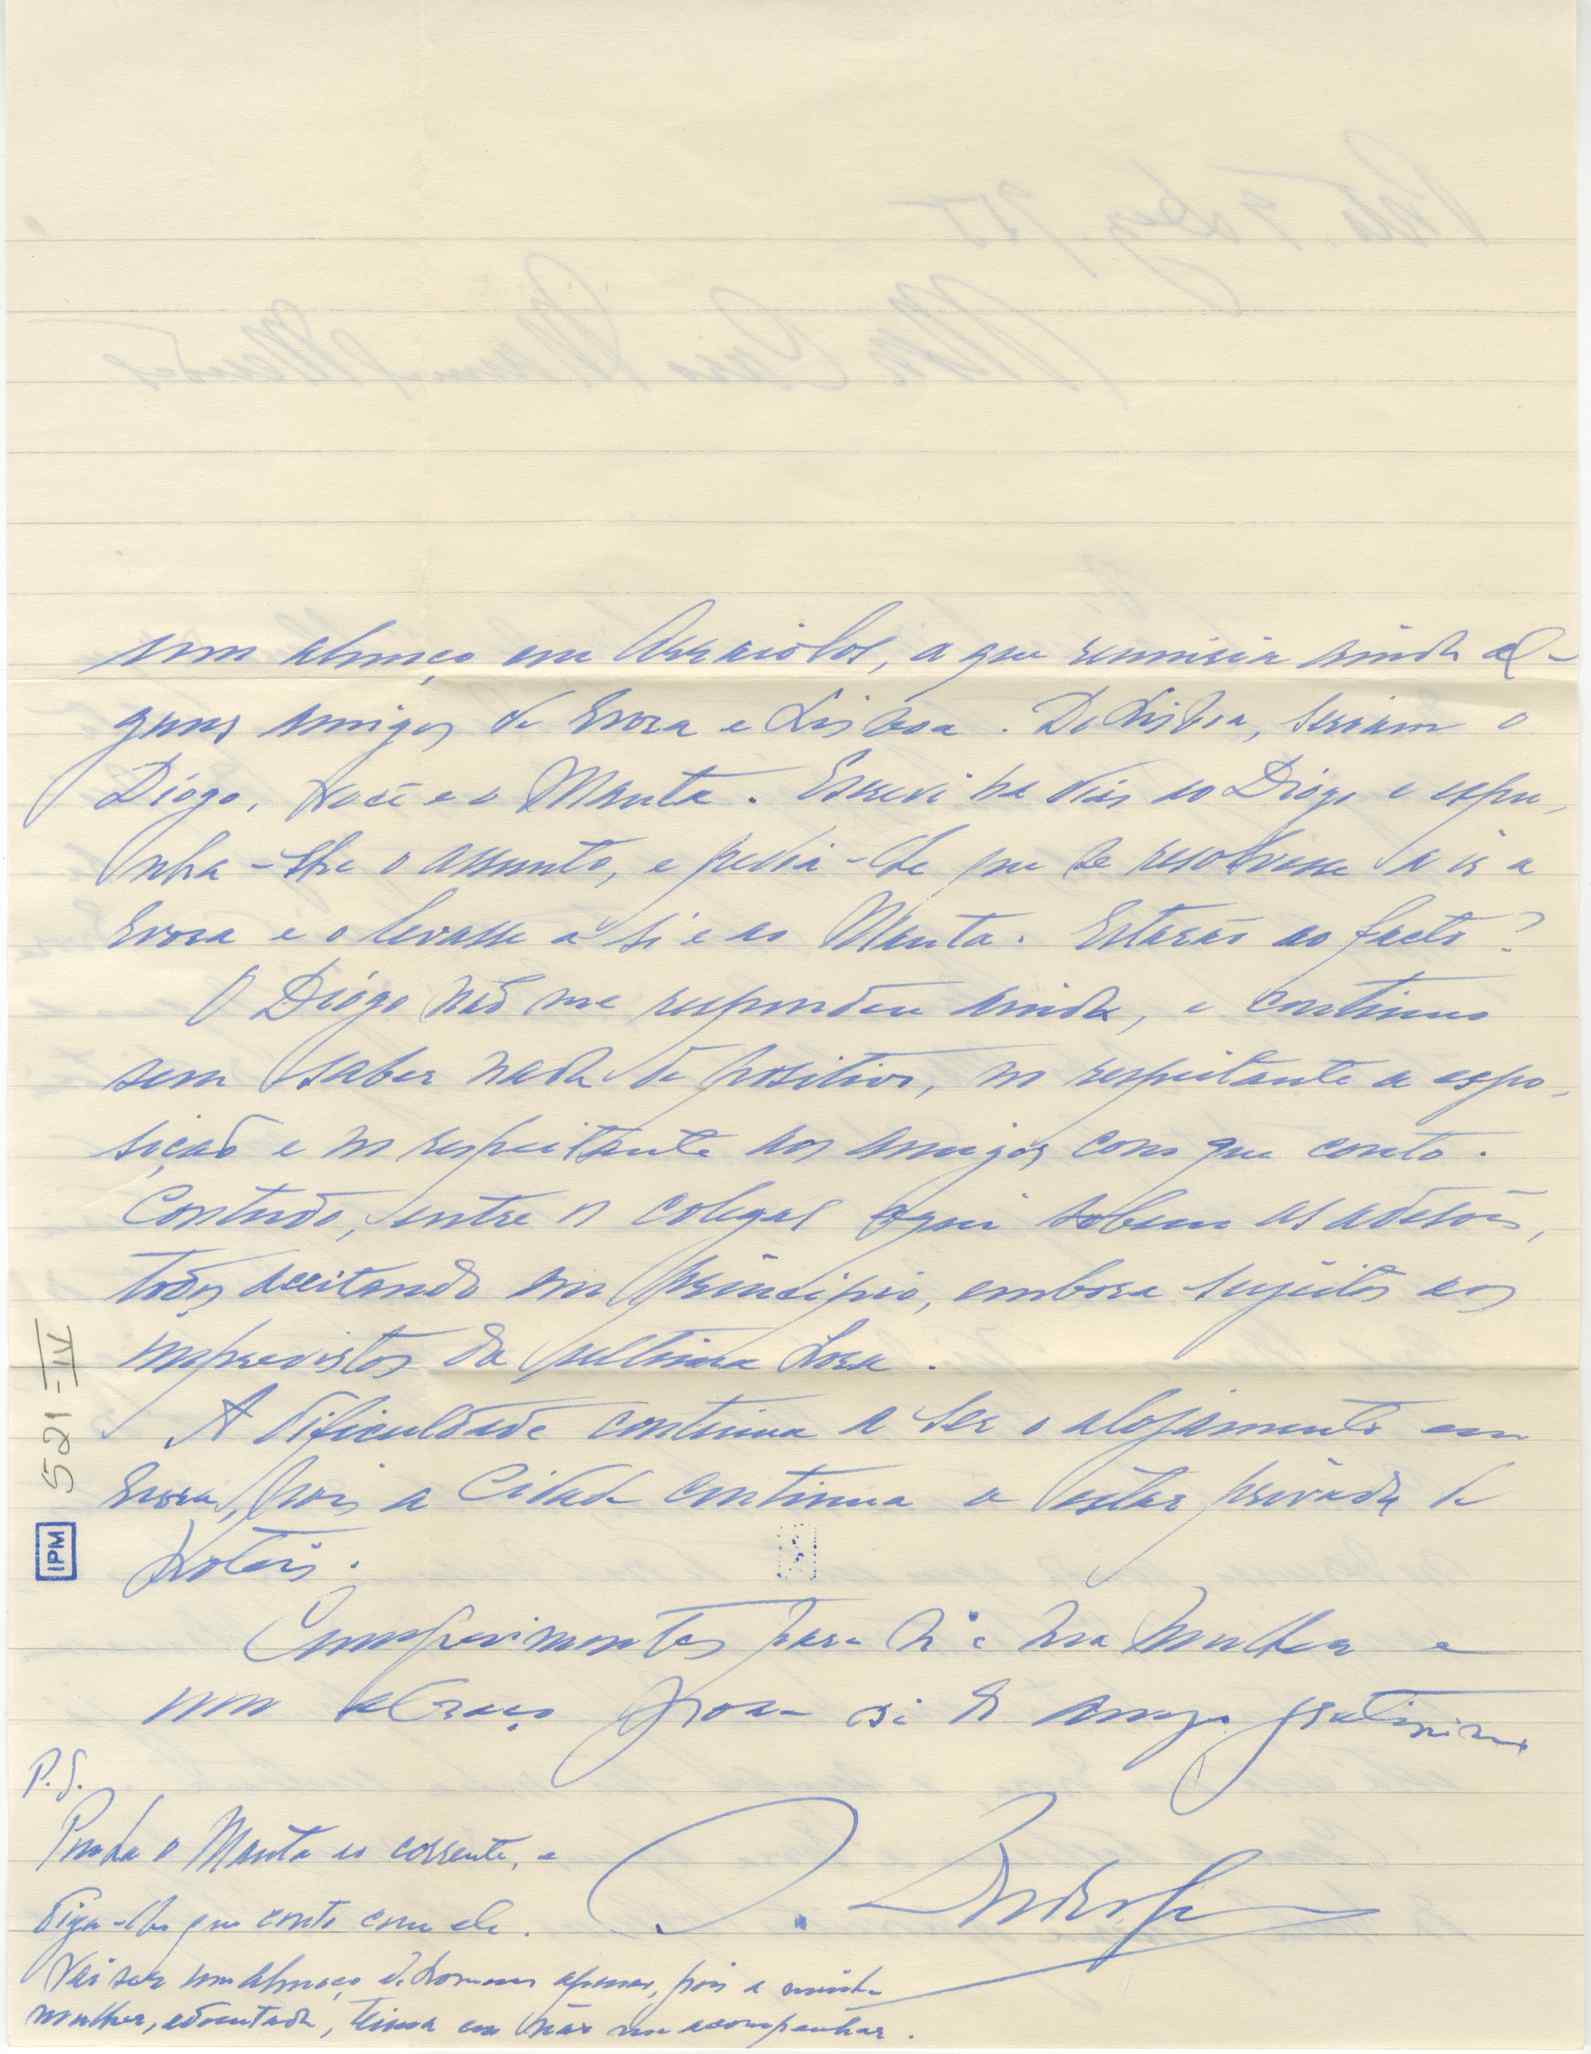 um almoço em Arraiolos, a que reuniria ainda al-
guns amigos de Evora e Lisboa. De Lisboa, seriam o
Diógo, Você e o Manta. Escrevi ha dias ao Diógo e expu-
nha-lhe o assunto, e pedia-lhe que se resolvesse a ir a
Evora e o levasse a si e ao Manta. Estarão ao facto?
O Diógo não me respondeu ainda, e continuo
sem saber nada de positivo, no respeitante a expo-
sição e no respeitante aos amigos com que conto.
Contudo, entre os colegas aqui sobem as adesões,
todos aceitando em principio, embora sujeitos aos
imprevistos da ultima hora.
A dificuldade continua a ser o alojamento em
Evora, pois a Cidade continua a estar privada de
Hoteis.
Cumprimentos para si e sua Mulher e
um abraço para si do amigo
P.S.
Ponha o Manta ao corrente, e
diga-lhe que conto com ele.
Vai ser um almoço de homens apenas, pois a minha
mulher, adoentada, teima em não me acompanhar.
521-IV
IPM
Porto 9 Dez. 955
Meu Caro Manuel Mendes